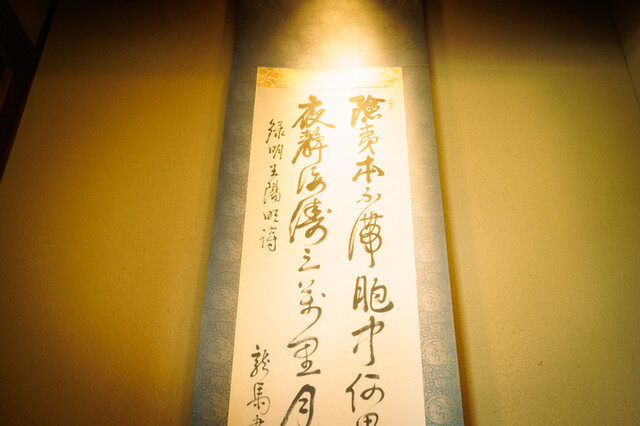 險夷本不滯胸中何
夜靜海濤三萬里月
録明王陽明詩
龍馬